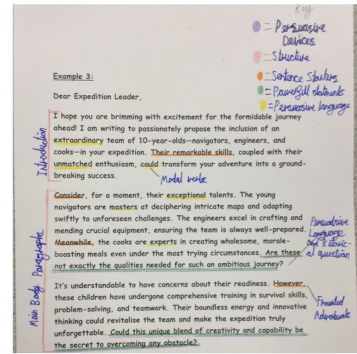 Key
= Persuasive Devices
= Structure
= Sentence Starters
= Powerfull statements
= Persuasive language
Example 3:
Dear Expedition Leader,
I hope you are brimming with excitement for the formidable journey
ahead! I am writing to passionately propose the inclusion of an
extraordinary team of 10-year-olds—navigators, engineers, and
cooks—in your expedition. Their remarkable skills, coupled with their
unmatched enthusiasm, could transform your adventure into a ground-
breaking success.
Introduction
Modal verbs
Consider, for a moment, their exceptional talents. The young
navigators are masters at deciphering intricate maps and adapting
swiftly to unforeseen challenges. The engineers excel in crafting and
mending crucial equipment, ensuring the team is always well-prepared.
Meanwhile, the cooks are experts in creating wholesome, morale-
boosting meals even under the most trying circumstances. Are these
not exactly the qualities needed for such an ambitious journey?
Persuasive
Language
and Rhetoric
al question
It's understandable to have concerns about their readiness. However,
these children have undergone comprehensive training in survival skills,
problem-solving, and teamwork. Their boundless energy and innovative
thinking could revitalise the team and make the expedition truly
unforgettable. Could this unique blend of creativity and capability be
the secret to overcoming any obstacle?
Fronted
Adverbials
Main Body Paragraphs